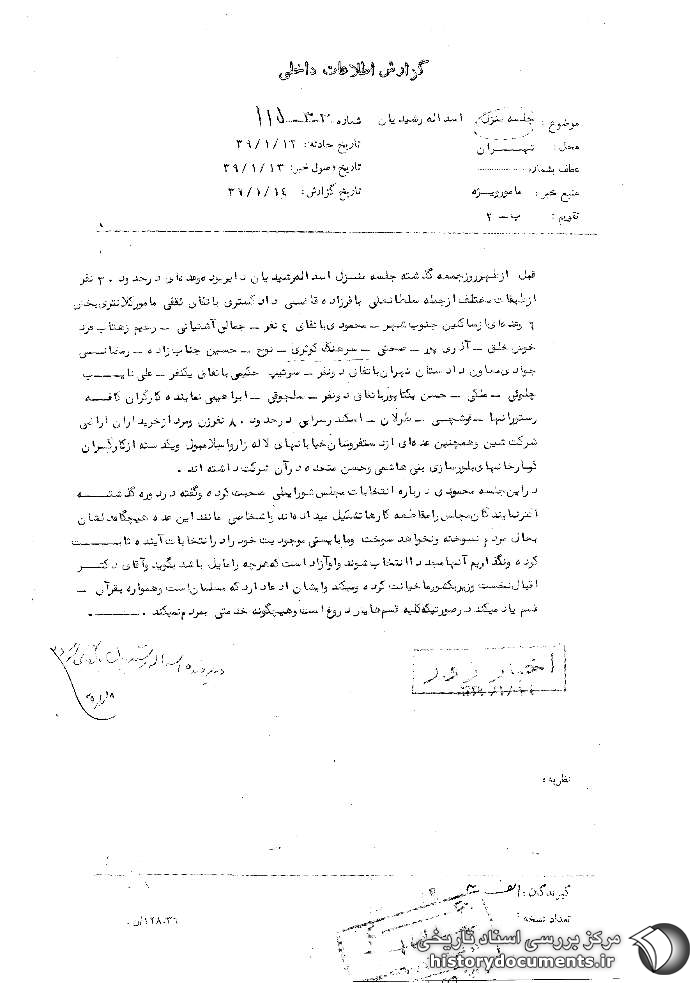 گزارش اطلاعات داخلی
موضوع : جلسه منزل اسداله رشیدیان شماره
محل : تهران تاریخ حادثه : ۳۹/۱/۱۲
عطف بشماره تاریخ وصول خبر : ۳۹/۱/۱۳
منبع خبر : مامورویژه تاریخ گزارش : ۳۹/۱/۱۴
تقویم : ب - ۲
قبل ازظهرروزجمعه گذشته جلسه منزل اسداله رشیدیان دایربوده وعده‌ای درحدود ۳۰ نفر
ازطبقات مختلف ازجمله سلطانعلی بافرزاده قاضی دادگستری باتفاق نفقی مامورکلانتری بخش
۶ وعده‌ای ازساکنین جنوب شهر - محمودی باتفاق ٤ نفر - جمالی آشتیانی - رحیم زهتاب فرد
خوش خلق - آذری پور - صحتی - سرهنگ کوثری - نوح - حسین جناب زاده - رمضانی
جوادی معاون دادستان تهران باتفاق دونفر - سرتیپ حکیمی باتفاق یکنفر - علی نایب
چلوئی - ملکی - حسن یکتاپورباتفاق دونفر - سلجوقی - ابراهیمی نماینده کارگران کافه
رستورانها - قوشچی - طرلان - اسکندرسرابی درحدود ۸۰ نفرزن ومرد ازخریداران اراضی
شرکت شین وهمچنین عده‌ای ازدستفروشان خیابانهای لاله زارواسلامبول ویکدسته ازکارگران
کارخانهای بلورسازی بنی هاشمی وحسن متحده درآن شرکت داشته اند .
دراین جلسه محمودی درباره انتخابات مجلس شورایملی صحبت کرده وگفته دردوره گذشته
اکثرنمایندگان مجلس رامقاطعه کارها تشکیل میداده‌اند واشخاصی مانند این عده هیچگاه دلشان
بحال مردم نسوخته ونخواهد سوخت ومابایستی موجودیت خود رادرانتخابات آینده ثابت
کرده ونگذاریم آنها مجددا انتخاب شوند واوآزاد است که هرچه رامایل باشد بگوید وآقای دکتر
اقبال نخست وزیربکشورما خیانت کرده ومیکند وایشان ادعا دارد که مسلمان است وهمواره بقرآن -
قسم یاد میکند درصورتیکه کلیه قسم‌هایش دروغ است وهیچگونه خدمتی بمردم نمیکند .
نظریه :
گیرندگان :
تعداد نسخه :
۱۲۸۰۳۶
مرکز بررسی اسناد تاریخی
historydocuments.ir